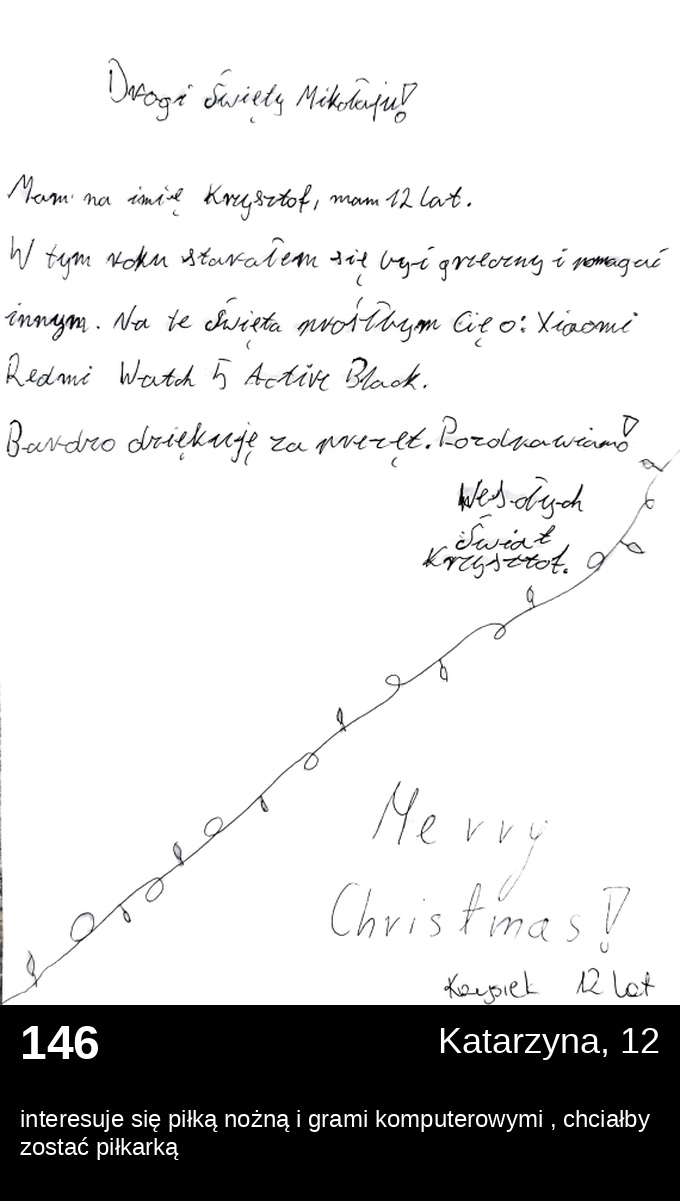 Drogi Święty Mikołaju!
Mam na imię Krzysztof, mam 12 lat.
W tym roku starałem się być grzeczny i pomagać
innym. Na te Święta prosiłbym Cię o: Xiaomi
Redmi Watch 5 Active Black.
Bardzo dziękuję za prezęt. Pozdrawiam!
Wesołych
Świąt
Krzysztof.
Merry
Christmas!
Krzysiek 12 lat
146
Katarzyna, 12
interesuje się piłką nożną i grami komputerowymi , chciałby
zostać piłkarką